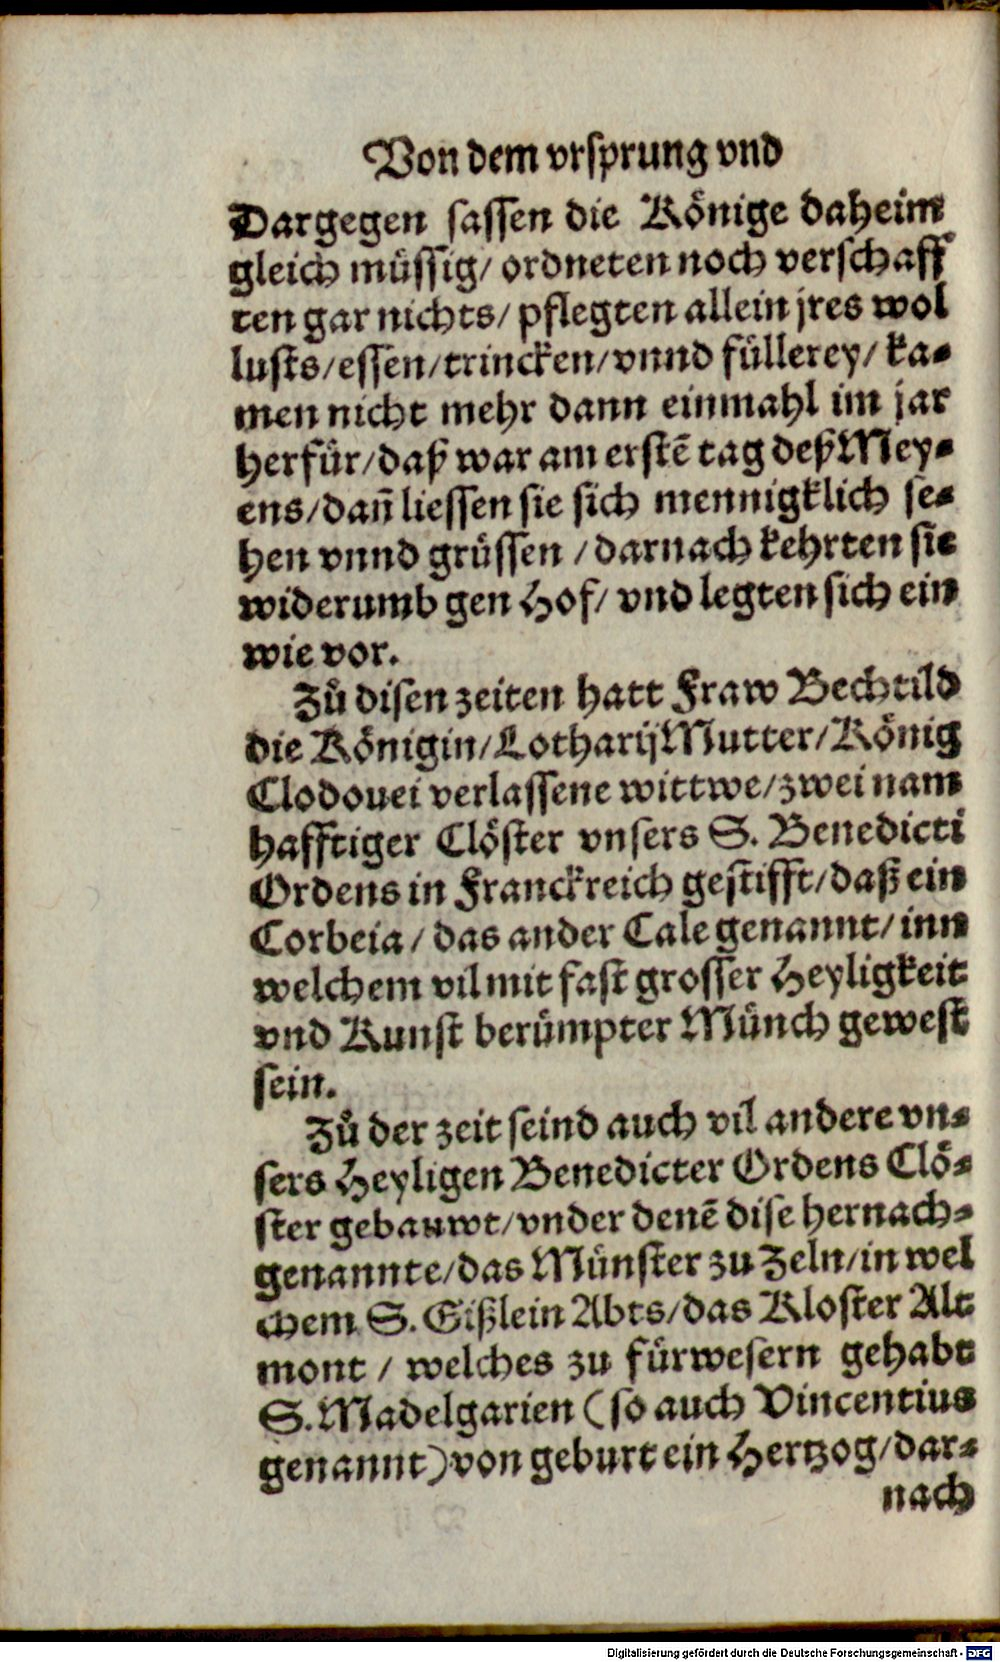 Von dem vrsprung vnd
Dargegen sassen die Könige daheim
gleich müssig/ ordneten noch verschaff
ten gar nichts/ pflegten allein jres wol
lusts/essen/trincken/vnnd füllerey/ ka-
men nicht mehr dann einmahl im jar
herfür/daß war am erstẽ tag deß Mey-
ens/dañ liessen sie sich mennigklich se-
hen vnnd grüssen /darnach kehrten sie
widerumb gen Hof/ vnd legten sich ein
wie vor.
Zů disen zeiten hatt Fraw Bechtild
die Königin/Lotharij Mutter/König
Clodouei verlassene wittwe/zwei nam
hafftiger Clöster vnsers S. Benedicti
Ordens in Franckreich gestifft/daß ein
Corbeia/ das ander Cale genannt/ inn
welchem vil mit fast grosser Heyligkeit
vnd Kunst berümpter Münch gewest
sein.
Zů der zeit seind auch vil andere vn-
sers Heyligen Benedicter Ordens Clö-
ster gebauwt/vnder denẽ dise hernach-
genannte/das Münster zu Zeln/in wel
chem S. Gißlein Abts/das Kloster Alt
mont / welches zu fürwesern gehabt
S. Madelgarien (so auch Vincentius
genannt) von geburt ein Hertzog/dar-
nach
Digitalisierung gefördert durch die Deutsche Forschungsgemeinschaft - DFG